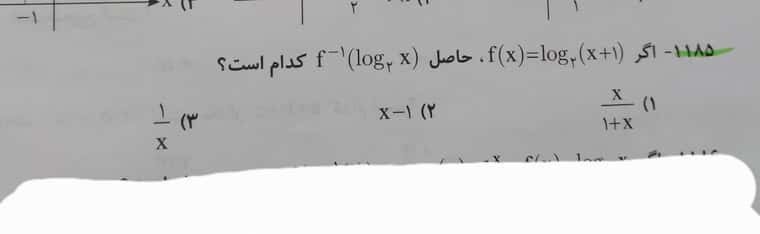 -۱
۲
۱
۱۱۸۵- اگر f(x)=log₂(x+۱)، حاصل f⁻¹(log₂ x) کدام است؟
۱) x/۱+x ۲) x-۱ ۳) ۱/x